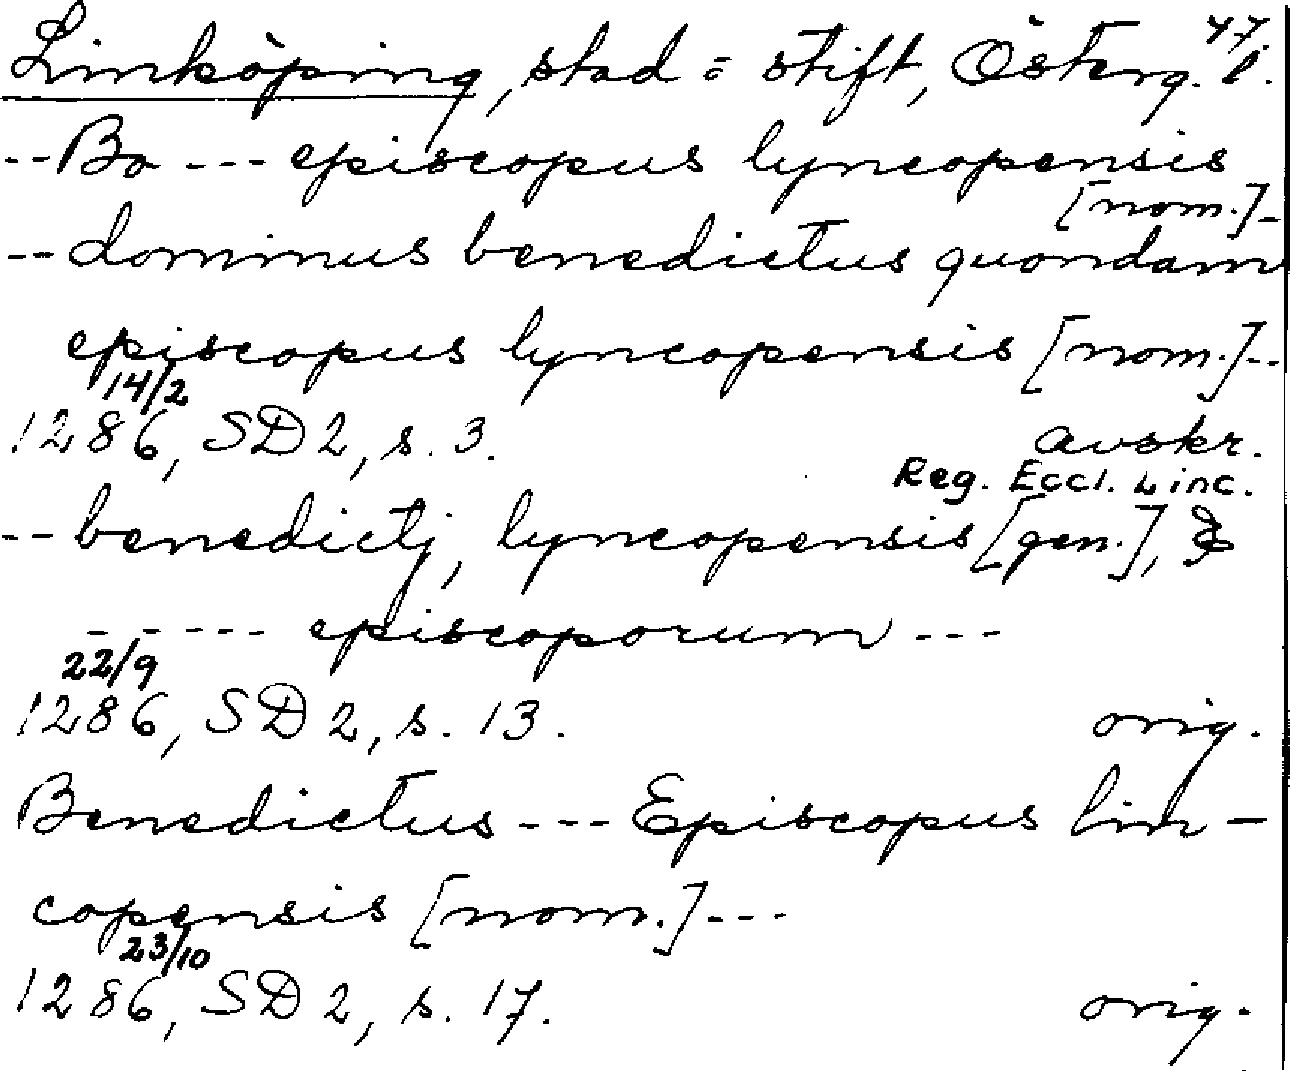 47.
Linköping, stad o stift, Österg. l.
-- Bo --- episcopus lyncopensis
[nom.]-
-- dominus benedictus quondam
episcopus lyncopensis [nom.]--
14/2
1286, SD 2, s. 3. avskr.
Reg. Eccl. Linc.
-- benedictj, lyncopensis [gen.], &
- - --- episcoporum ---
22/9
1286, SD 2, s. 13. orig.
Benedictus --- Episcopus lin-
copensis [nom.]---
23/10
1286, SD 2, s. 17. orig.